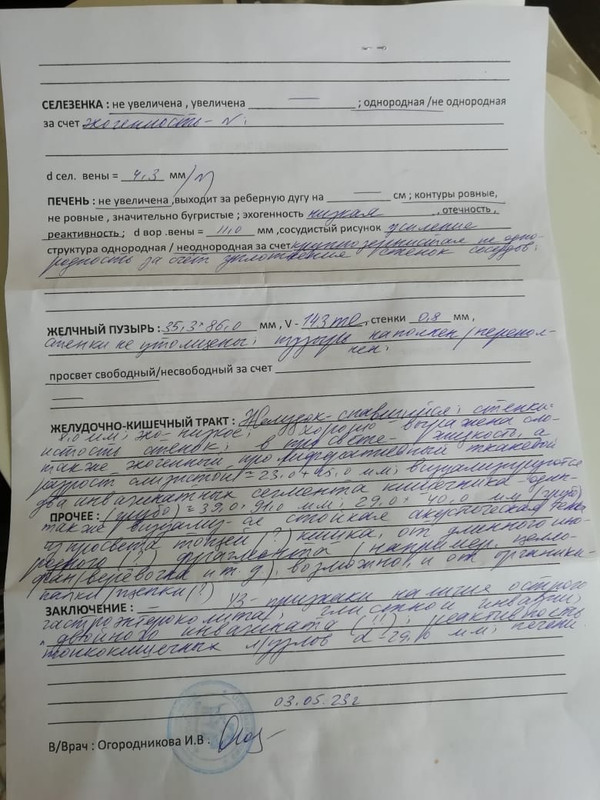 СЕЛЕЗЕНКА : не увеличена , увеличена ; однородная /не однородная
за счет эхогенность - N;
d сел. вены = 4,3 мм/N
ПЕЧЕНЬ : не увеличена ,выходит за реберную дугу на см ; контуры ровные,
не ровные , значительно бугристые ; эхогенность низкая , отечность ,
реактивность ; d вор .вены = 11,0 мм ,сосудистый рисунок усиление
структура однородная / неоднородная за счет крупнозернистая не одно-
родность за счет уплотнения стенок сосудов;
ЖЕЛЧНЫЙ ПУЗЫРЬ : 35,3*86,0 мм , V - 143 ml , стенки 0,8 мм ,
стенки не утолщены; пузырь наполнен/перепол-
нен;
просвет свободный/несвободный за счет
ЖЕЛУДОЧНО-КИШЕЧНЫЙ ТРАКТ : Желудок - спавшийся; стенки
8,0 мм; эхо - низкое; хорошо выражена сло-
истость стенок; в просвете - жидкость, а
также эхогенный пролиферативный тканевой
разрост слизистой = 23,0*15,0 мм; визуализируются
два инвазикатных сегмента кишечника - один-
ПРОЧЕЕ : (грубо) = 39,0*91,0 мм; 29,0*40,0 мм (грубо)
также визуализ-ся стойкая акустическая тень
из просвета тощей (?) кишки, от длинного ино-
родного фрагмента (например, цело-
фан/верёвочка и т.д), возможно, и от органики -
палки/щепки (!)
ЗАКЛЮЧЕНИЕ : - УЗ - признаки наличие острого
гастроэнтероколита; глистной инвазии;
двойного инвагината (!!); реактивность
тонкокишечных л/узлов d - мм; печени
03.05.23г
В/Врач : Огородникова И.В .